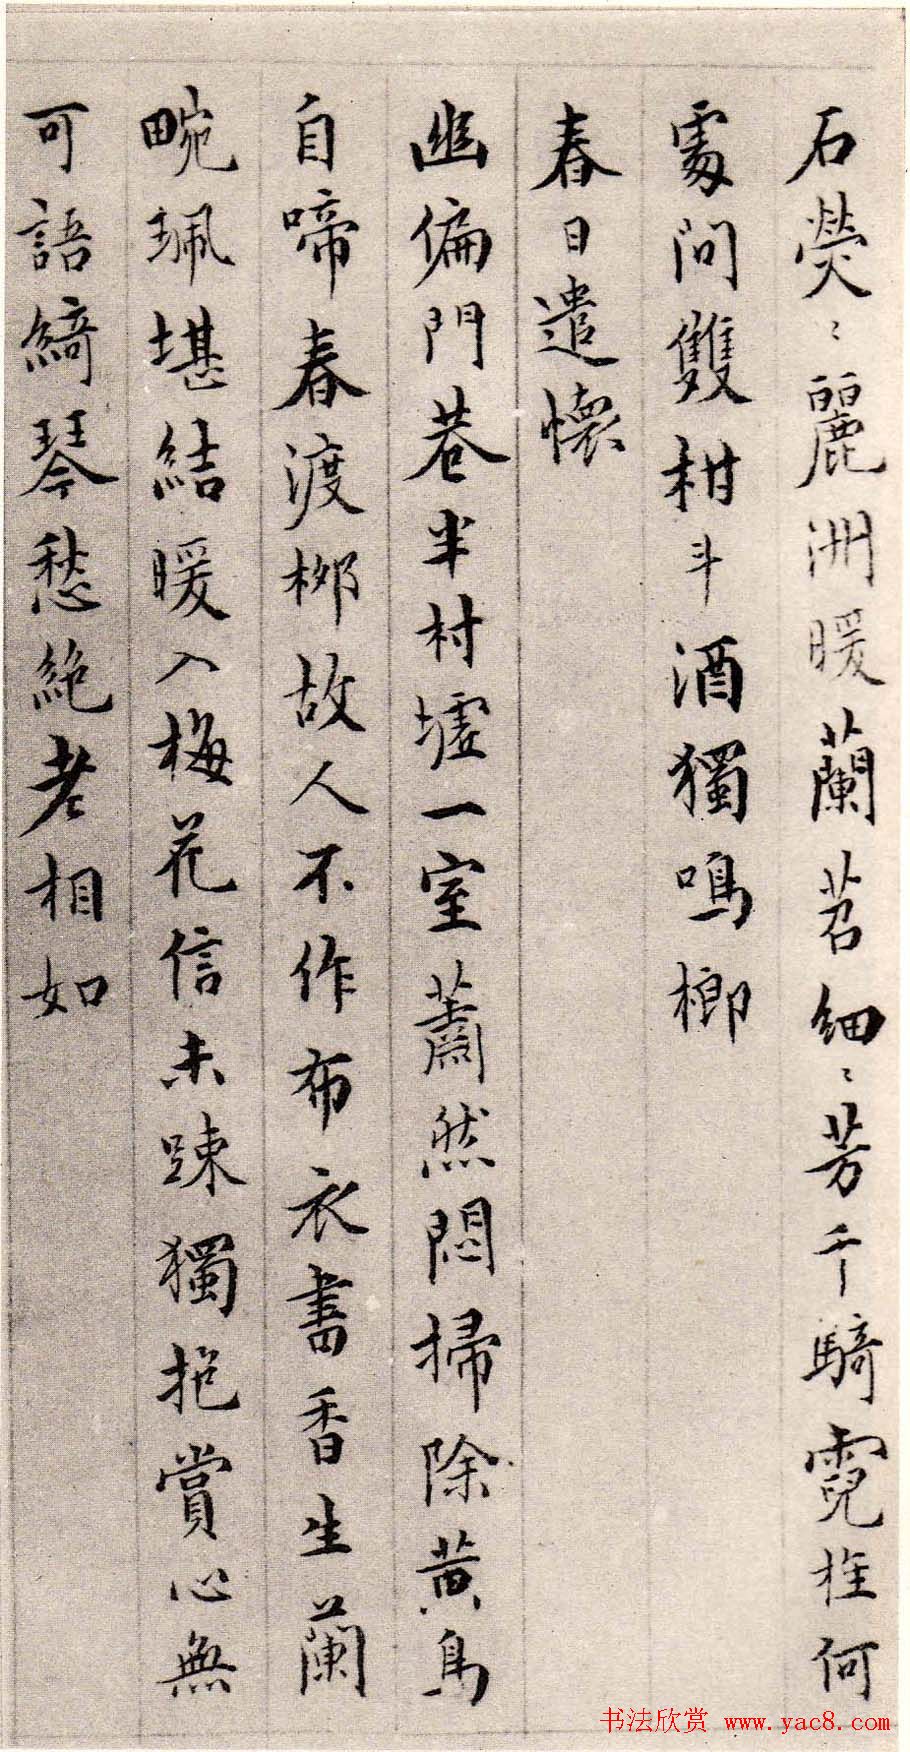 石熒〻麗洲暖蘭苕細〻芳千騎霓旌何
處問雙柑斗酒獨鳴榔
春日遣懷
幽偏門巷半村墟一室蕭然悶掃除黃鳥
自啼春渡柳故人不作布衣書香生蘭
畹珮堪結暖入梅花信未踈獨抱賞心無
可語綺琴愁絕老相如
书法欣赏 www.yac8.com